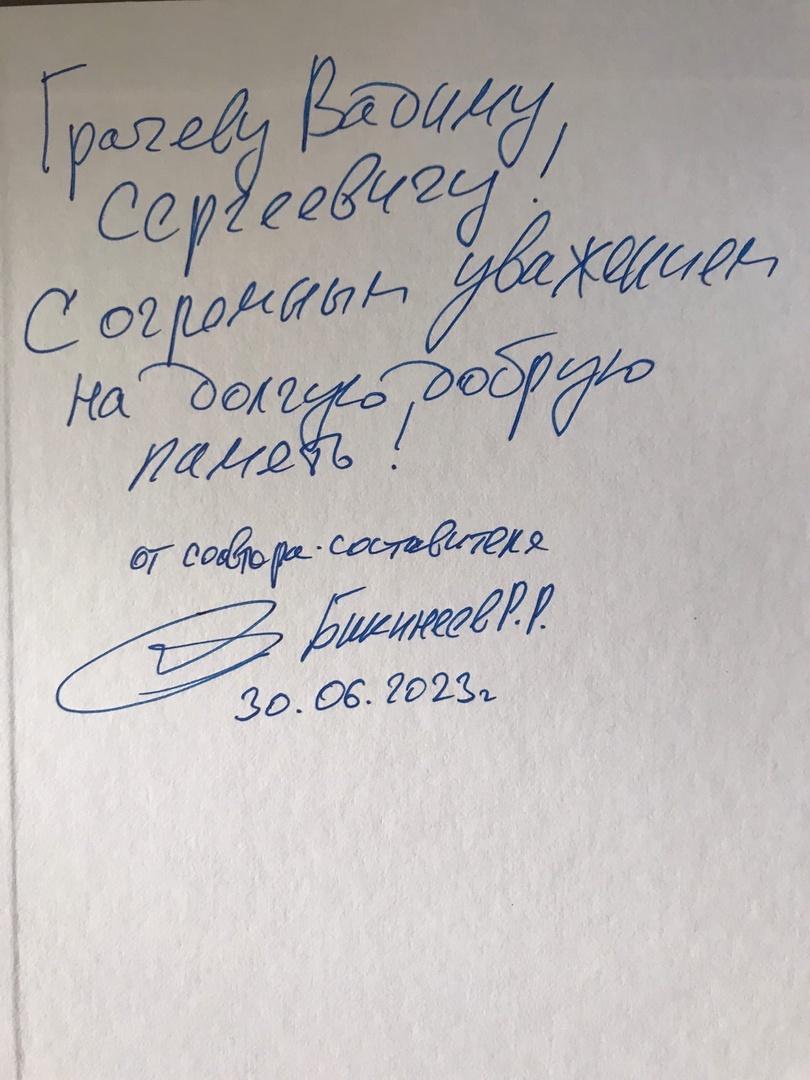 Грачеву Вадиму
Сергеевичу!
С огромным уважением
на долгую, добрую
память!
от соавтора-составителя
Бикинеев Р.Р.
30.06.2023г